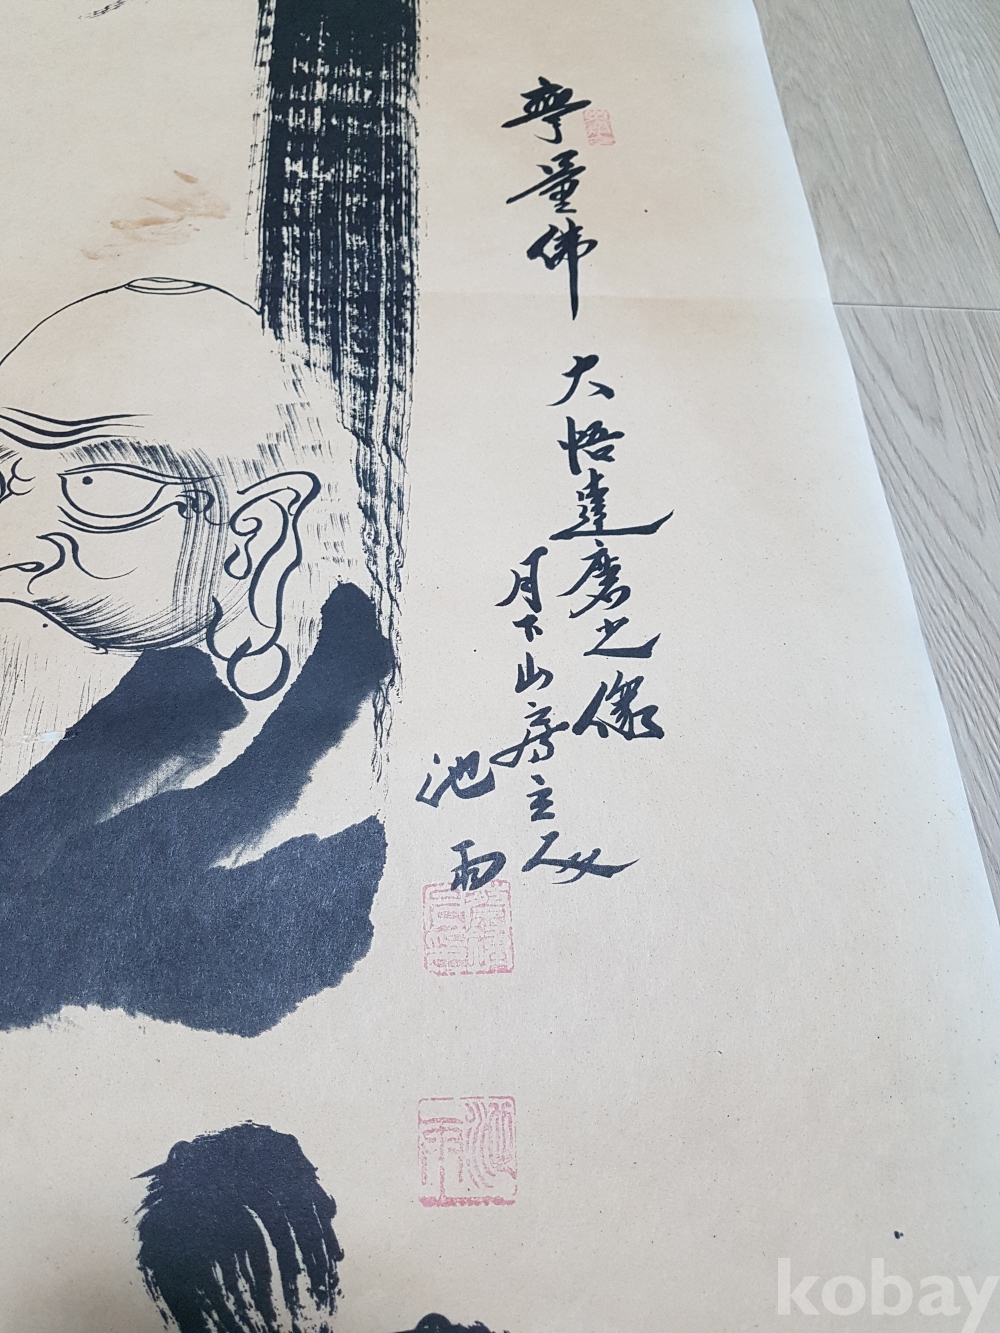 無量佛 大悟達磨之像
月下山房主人
池雨
池雨
kobay